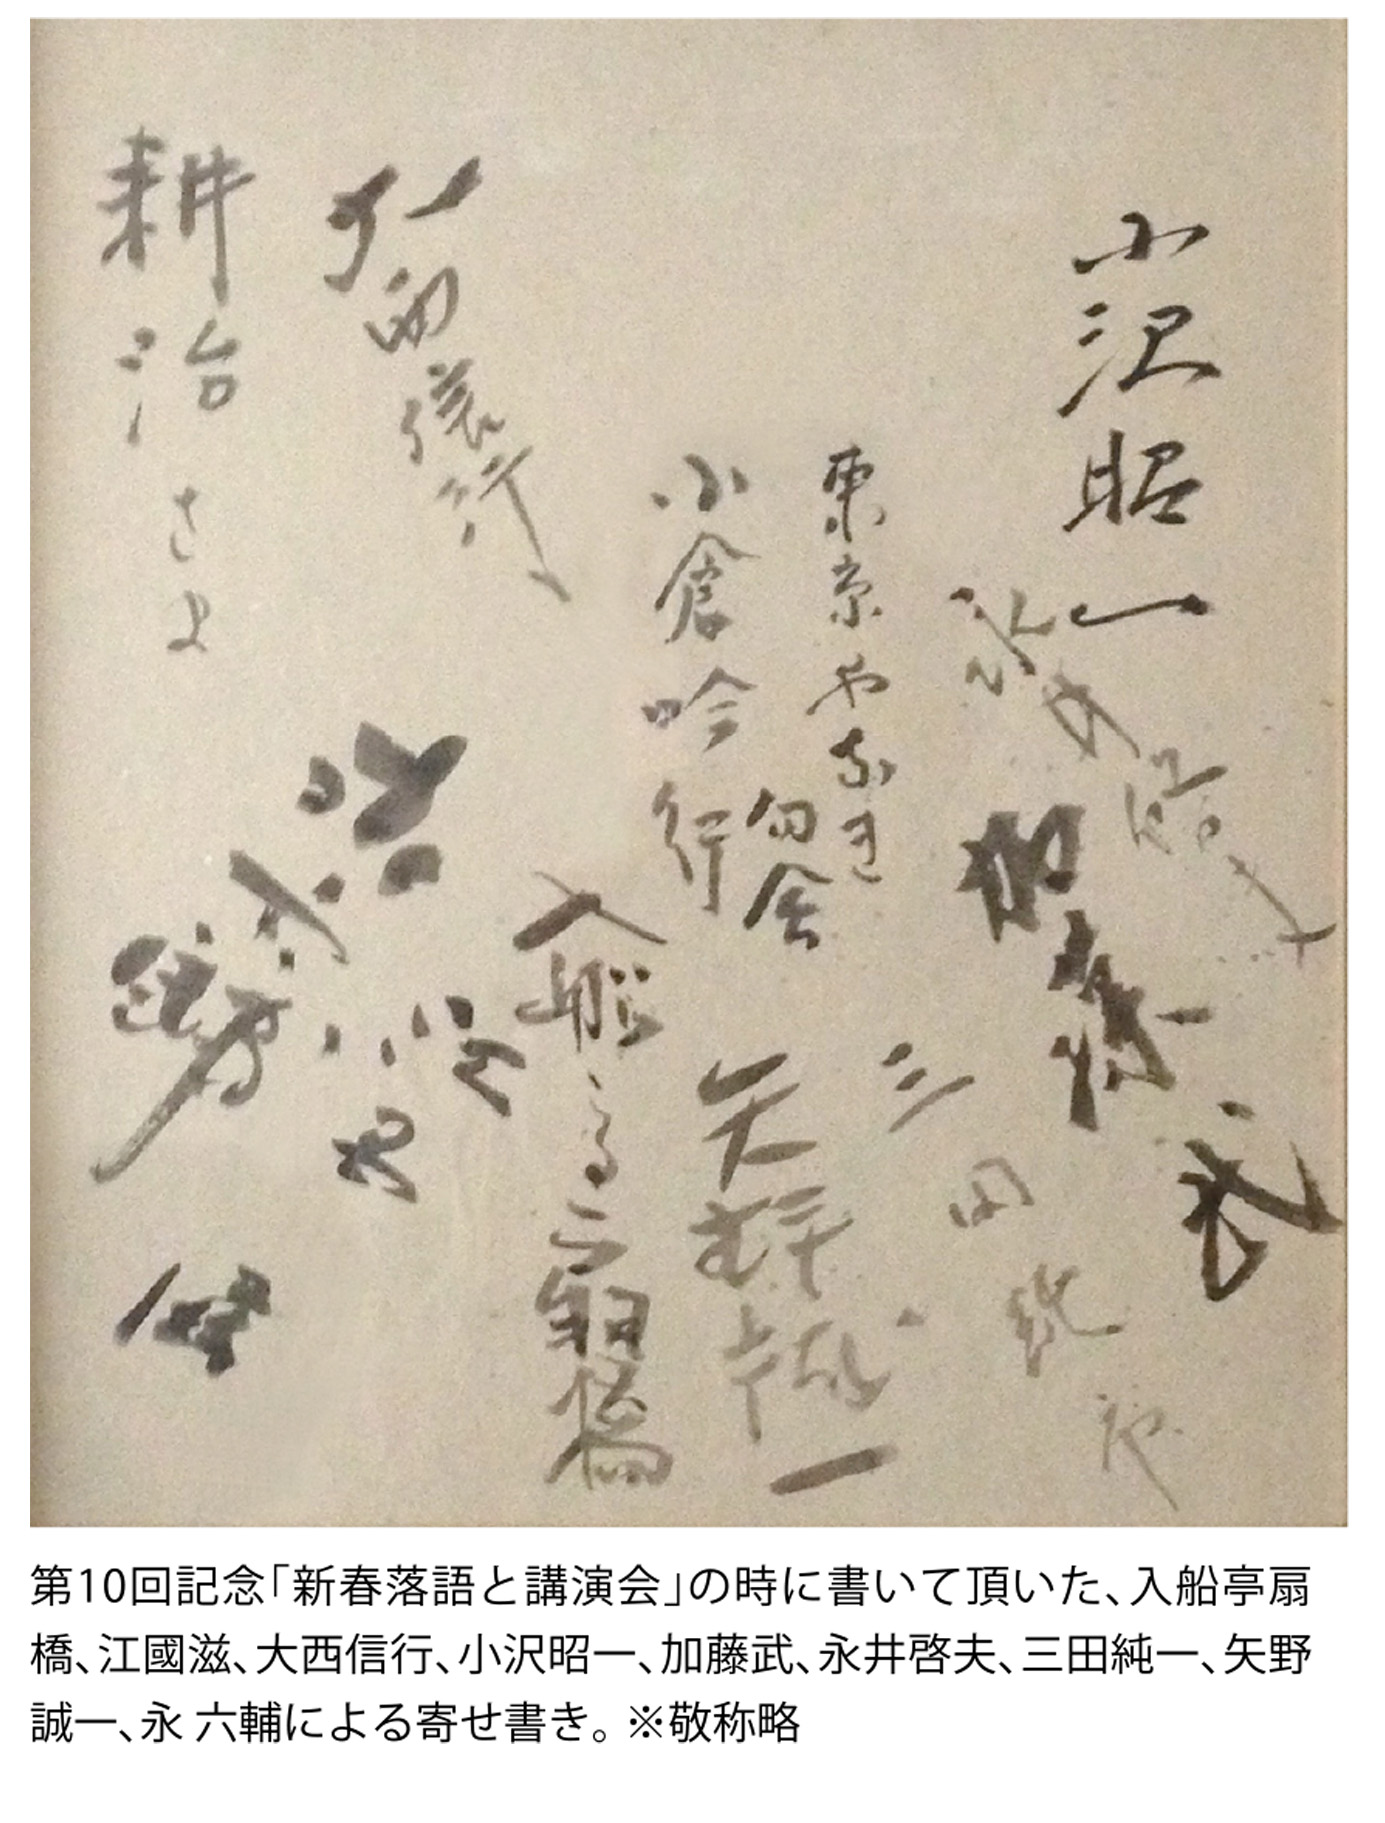 小沢昭一
永井啓夫
加藤武
東京やなぎ
句会
小倉吟行
三田純也
矢野誠一
入船亭扇橋
大西信行
永六輔
耕治さま
第10回記念「新春落語と講演会」の時に書いて頂いた、入船亭扇
橋、江國滋、大西信行、小沢昭一、加藤武、永井啓夫、三田純一、矢野
誠一、永 六輔による寄せ書き。※敬称略